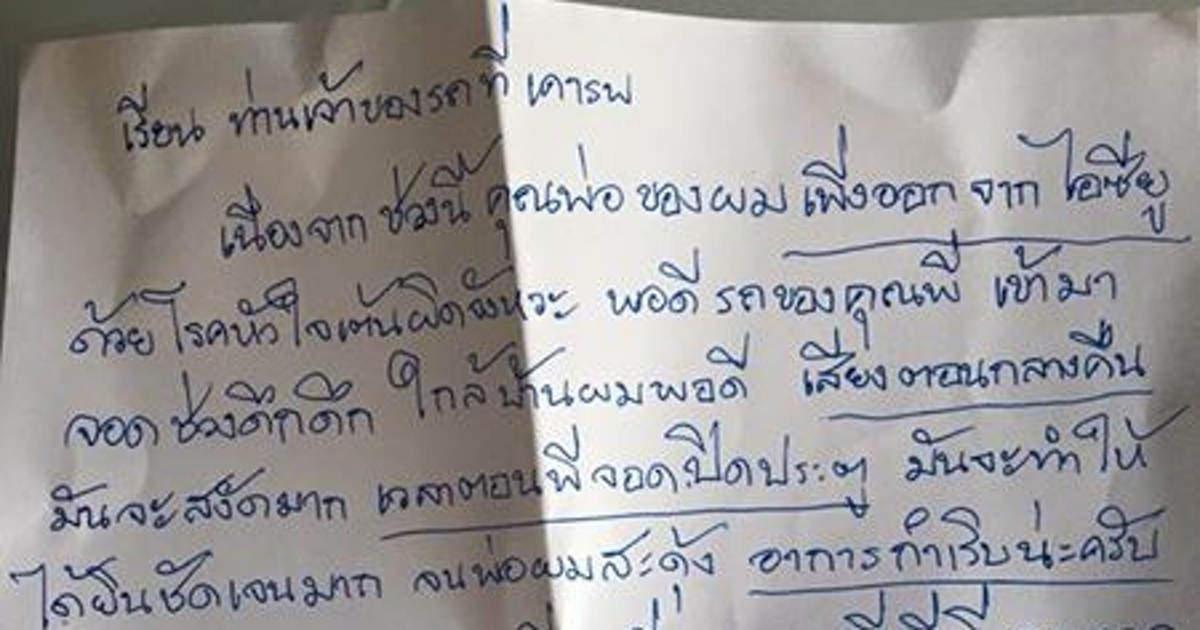 เรียน ท่านเจ้าของรถที่ เคารพ
เนื่องจาก ช่วงนี้ คุณพ่อ ของผม เพิ่งออก จาก ไอซียู
ด้วย โรคหัวใจเต้นผิดจังหวะ พอดี รถของคุณพี่ เข้ามา
จอด ช่วงดึกดึก ใกล้บ้านผมพอดี เสียงตอนกลางคืน
มันจะสงัดมาก เวลาตอนพี่จอด ปิดประตู มันจะทำให้
ได้ยินชัดเจนมาก จนพ่อผมสะดุ้ง อาการกำเริบน่ะครับ